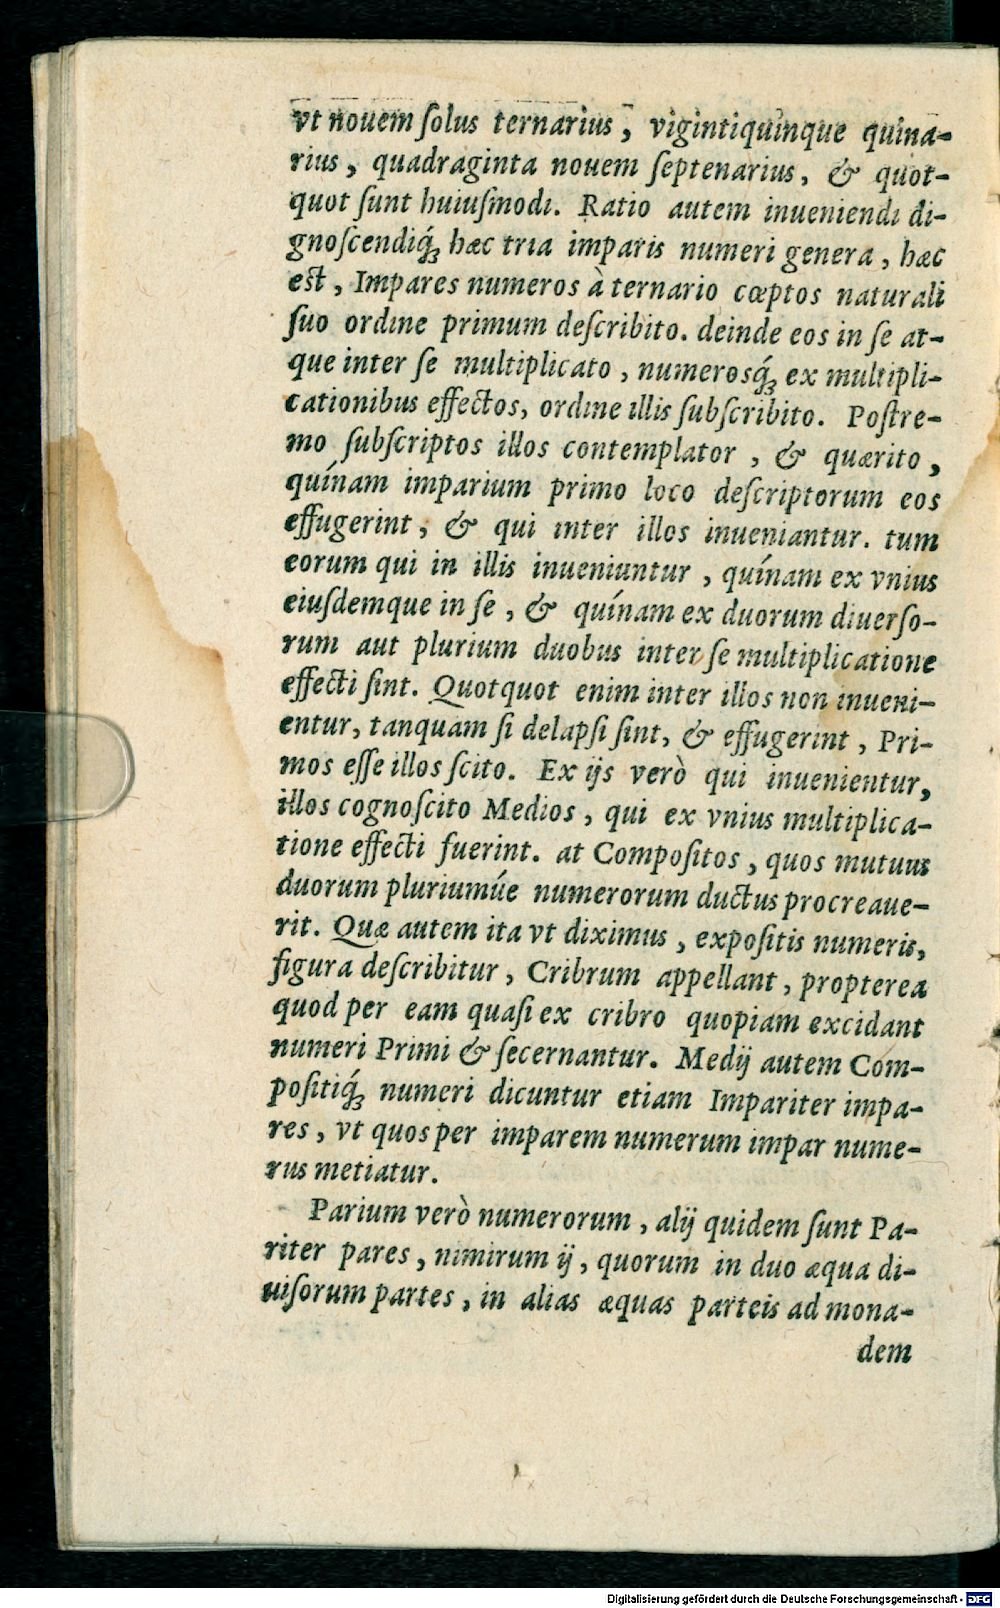 vt nouem ſolus ternarius, vigintiquinque quina-
rius, quadraginta nouem ſeptenarius, & quot-
quot ſunt huiuſmodi. Ratio autem inueniendi di-
gnoſcendiq́; hæc tria imparis numeri genera, hæc
eſt, Impares numeros à ternario cœptos naturali
ſuo ordine primum deſcribito. deinde eos in ſe at-
que inter ſe multiplicato, numerosq́; ex multipli-
cationibus effectos, ordine illis ſubſcribito. Poſtre-
mo ſubſcriptos illos contemplator, & quærito,
quínam imparium primo loco deſcriptorum eos
effugerint, & qui inter illos inueniantur. tum
eorum qui in illis inueniuntur, quínam ex vnius
eiuſdemque in ſe, & quínam ex duorum diuerſo-
rum aut plurium duobus inter ſe multiplicatione
effecti ſint. Quotquot enim inter illos non inueni-
entur, tanquam ſi delapſi ſint, & effugerint, Pri-
mos eſſe illos ſcito. Ex ijs verò qui inuenientur,
illos cognoſcito Medios, qui ex vnius multiplica-
tione effecti fuerint. at Compoſitos, quos mutuus
duorum pluriumúe numerorum ductus procreaue-
rit. Quæ autem ita vt diximus, expoſitis numeris,
figura deſcribitur, Cribrum appellant, propterea
quod per eam quaſi ex cribro quopiam excidant
numeri Primi & ſecernantur. Medij autem Com-
poſitiq́; numeri dicuntur etiam Impariter impa-
res, vt quos per imparem numerum impar nume-
rus metiatur.
Parium verò numerorum, alij quidem ſunt Pa-
riter pares, nimirum ij, quorum in duo æqua di-
uiſorum partes, in alias æquas parteis ad mona-
dem
Digitalisierung gefördert durch die Deutsche Forschungsgemeinschaft - DFG